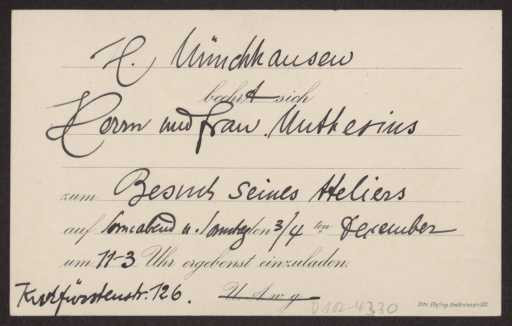 H. Münchhausen
beehrt sich
Herrn und Frau Muthesius
zum Besuch seines Ateliers
auf Sonnabend u. Sonntag den 3/4 ten Dezember
um 11-3 Uhr ergebenst einzuladen.
Kurfürstenstr. 126.
U A w g
D 102-4330